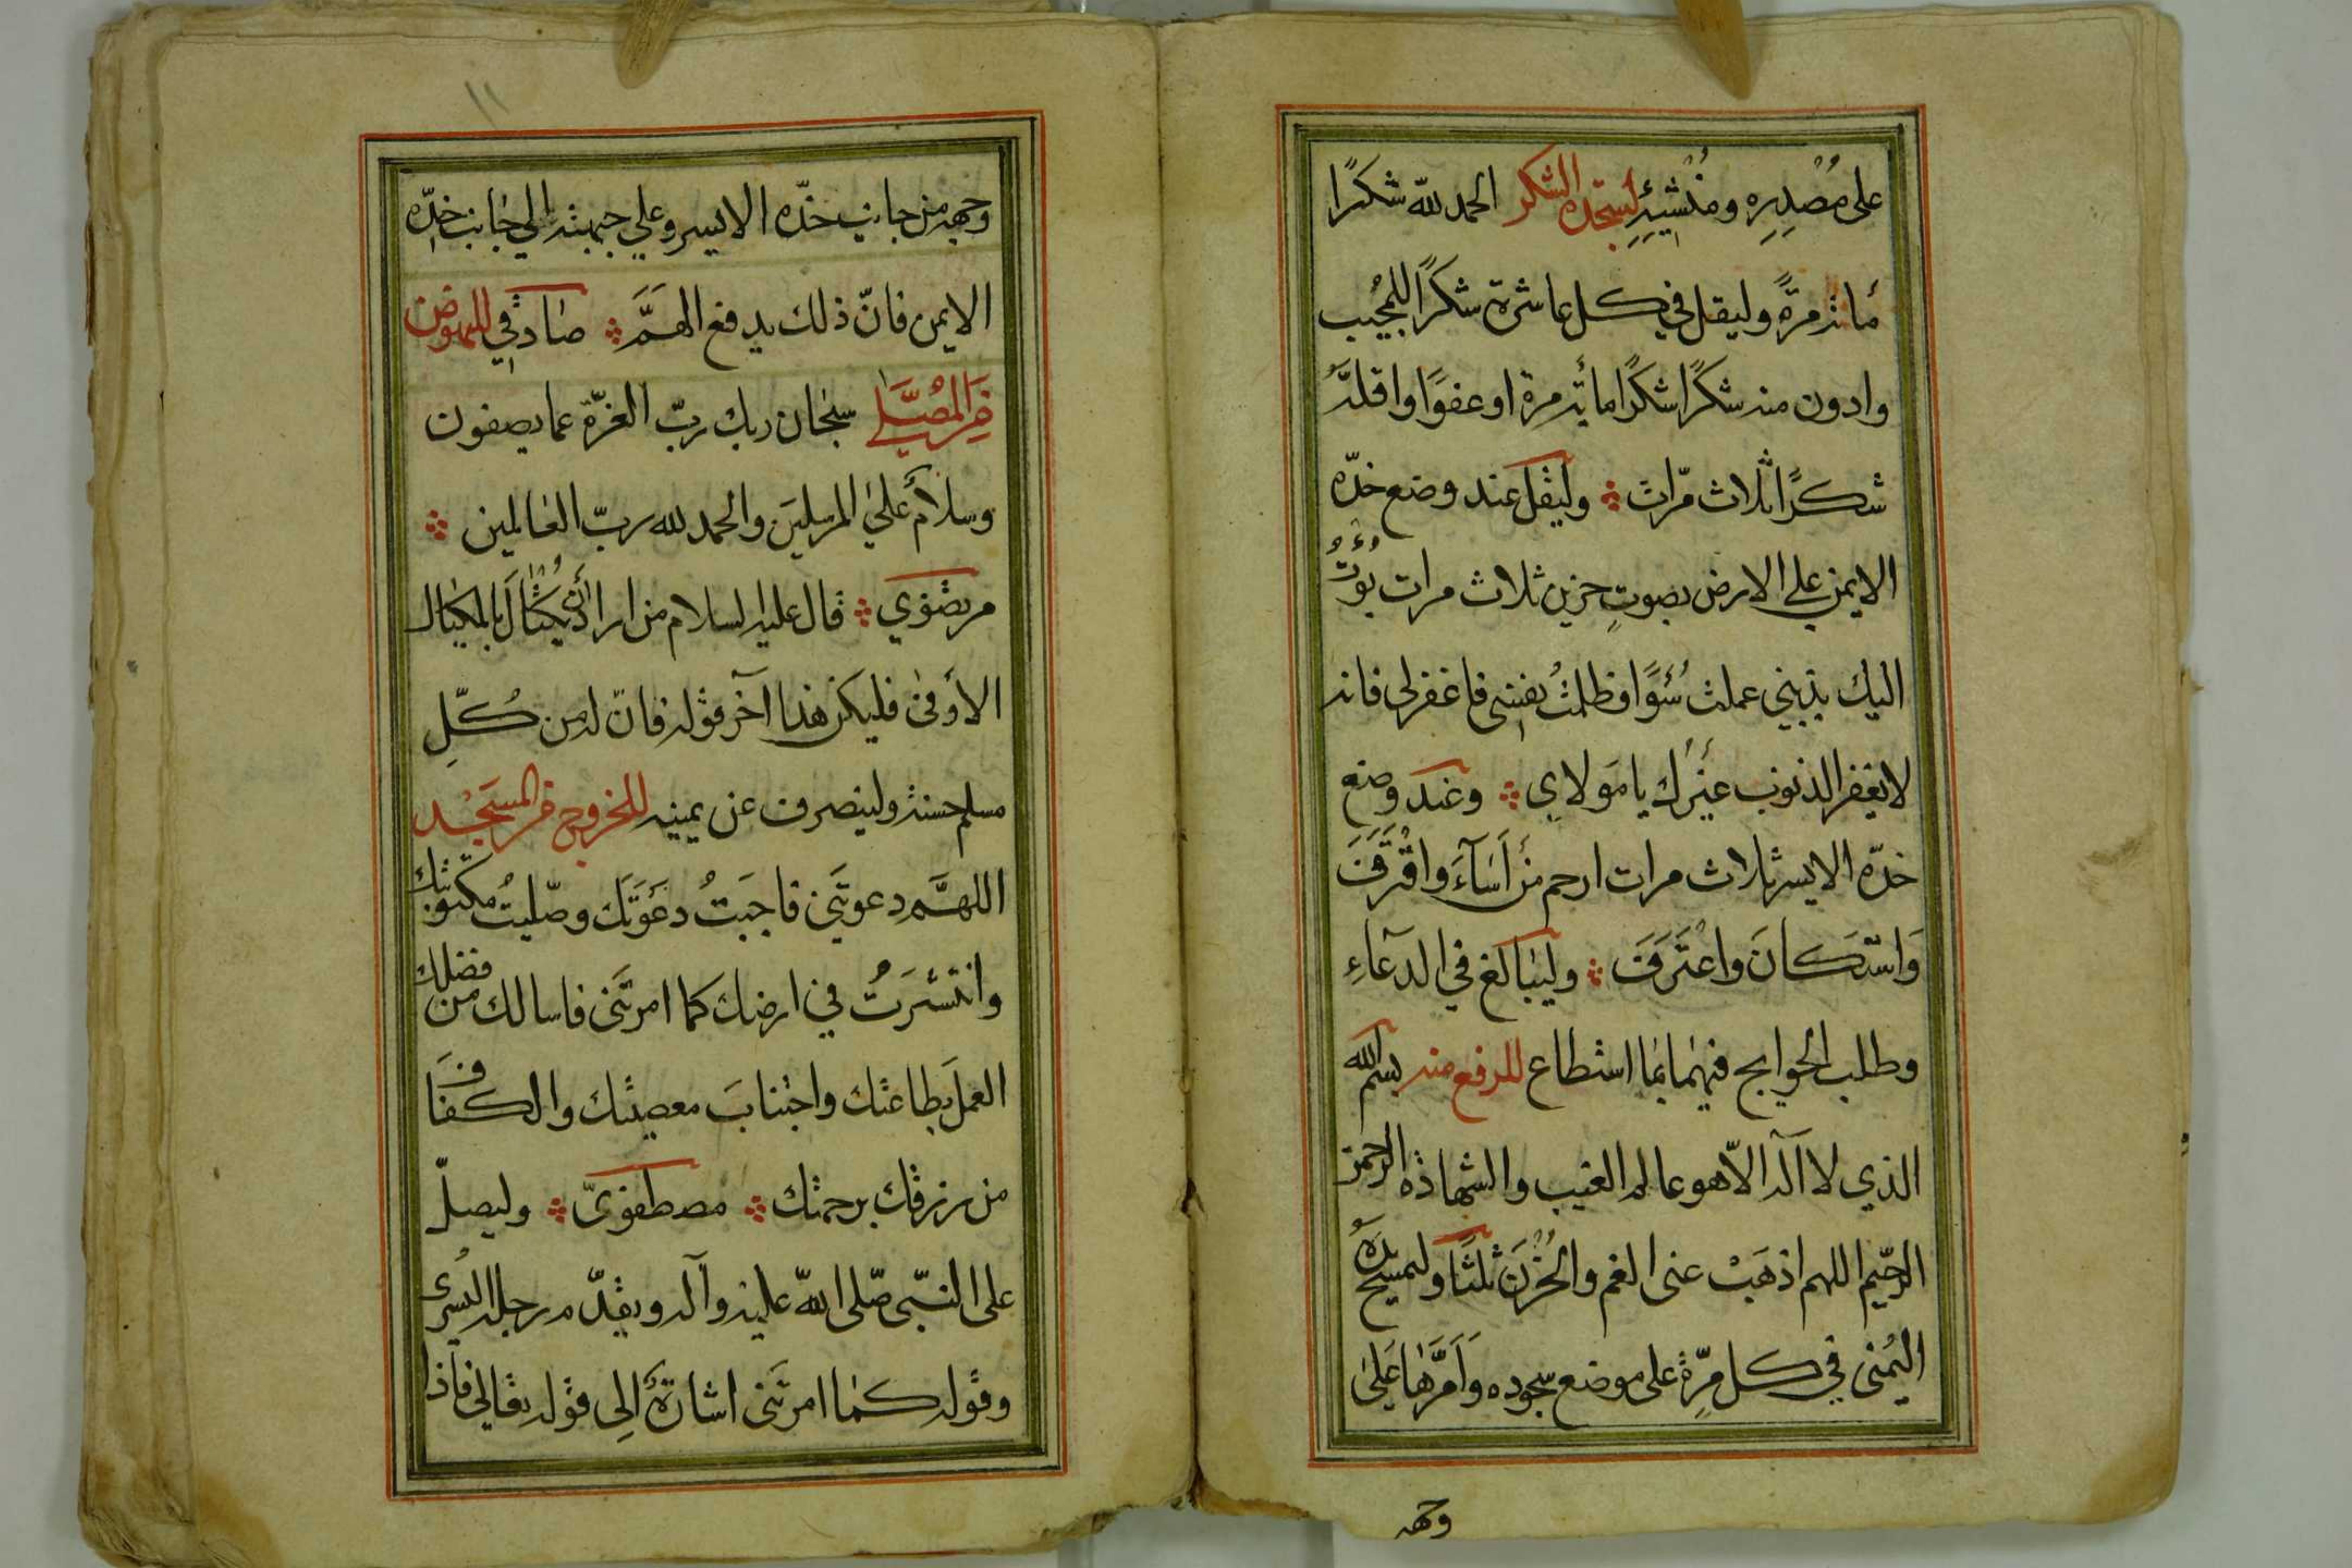 على مُصْدِرِه ومُنْشِيِّه لسجدة الشكر الحمد لله شكرًا
مائة مرةً وليقل في كل عاشرة شكرًا للمجيب
وادون منه شكرًا شكرًا مائة مرة او عفوًا واقلّه
شكرًا ثلاث مرّات وليقل عند وضع خدّه
الايمن على الارض بصوتٍ حزين ثلاث مرات بُؤْتُ
اليك بذنبي عملت سُوءًا وظلمتُ نفسي فاغفرلي فانه
لا يغفر الذنوب غيرُك يا مولاي وعند وضع
خدّه الايسر ثلاث مرات ارحم من اَسَآءَ واقْتَرَفَ
وَاسْتَكانَ واعْتَرَفَ وليبالغ في الدعآءِ
وطلب الحوايج فيهما بما استطاع للرفع منه بسم الله
الذي لا اله الّا هو عالم الغيب والشهادة الرحمن
الرحيم اللهم اذهَبْ عني الغم والحُزْنَ ثلثًا وليمسح يدَهُ
اليُمنى في كل مرّة على موضع سجوده وَاَمَرَّها عَلى
وجهه
١١
وجهه من جانب خدّه الايسر وعلي جبهته الي جانب خدّه
الايمن فانّ ذلك يدفع الهَمَّ صادقي للنهوض
من المُصَلّى سبحان ربك ربّ العزّة عما يصفون
وسلامٌ علي المرسلينَ والحمد لله ربّ العالمين
مرتضوي قال عليه السلام من اراد أن يُكْتالَ بالمكيال
الأوفى فليكن هذا آخر قوله فانّ له من كُلِّ
مسلم حسنة ولينصرف عن يمينه للخروج من المسجد
اللهمَّ دعوتَني فاجبتُ دعوتَك وصلّيتُ مكتوبتك
وانتشرتُ في ارضك كما امرتَني فاسالك من فضلك
العمل بطاعتك واجتنابَ معصيتك والكفافَ
من رزقك برحمتك مصطفويّ وليصلّ
على النبيّ صلّى الله عليه وآله ويقدّم رجله اليُسرى
وقوله كما امرتَني اشارةٌ الى قوله تعالى فاذا